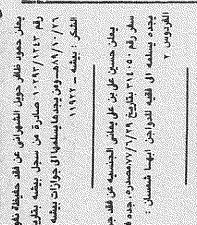 يعلن حمود ظافر حويل الشهراني عن فقد حفيظة نفوس
رقم ١٠٢٩٣/١٢٤٣ صادرة من سجل بيشه بتاريخ
٨٩/١٠/٢٦هـ ومن يجدها يسلمها الى جوازات بيشه
الشكر : بيشه ــ ١١٩٢٧
يعلن حسين علي بن علي يماني الجنسيه عن فقد
سفر رقم ٣١٤٠٥٠ بتاريخ ٧٧/٦/٢٩ مصدره : جده
يجده يسلمه الى فقيه للدواجن ابها :
الفردوس ٢